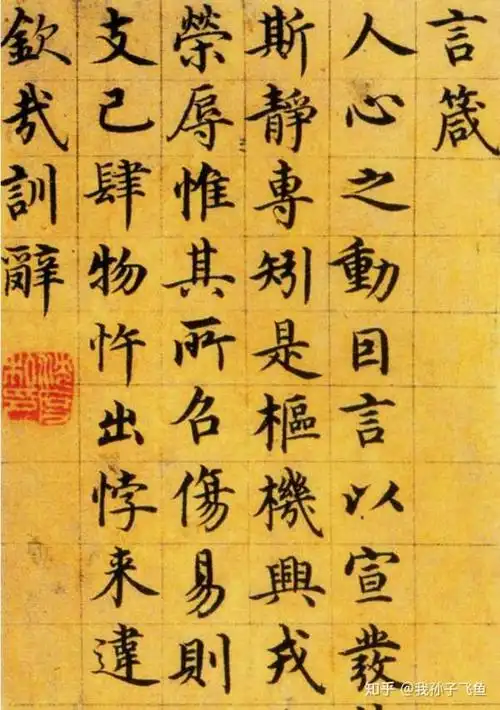 言箴
人心之動因言以宣發
斯靜專矧是樞機興戎
榮辱惟其所召傷易則
支己肆物忤出悖来違
欽哉訓辭
知乎 @我孙子飞鱼